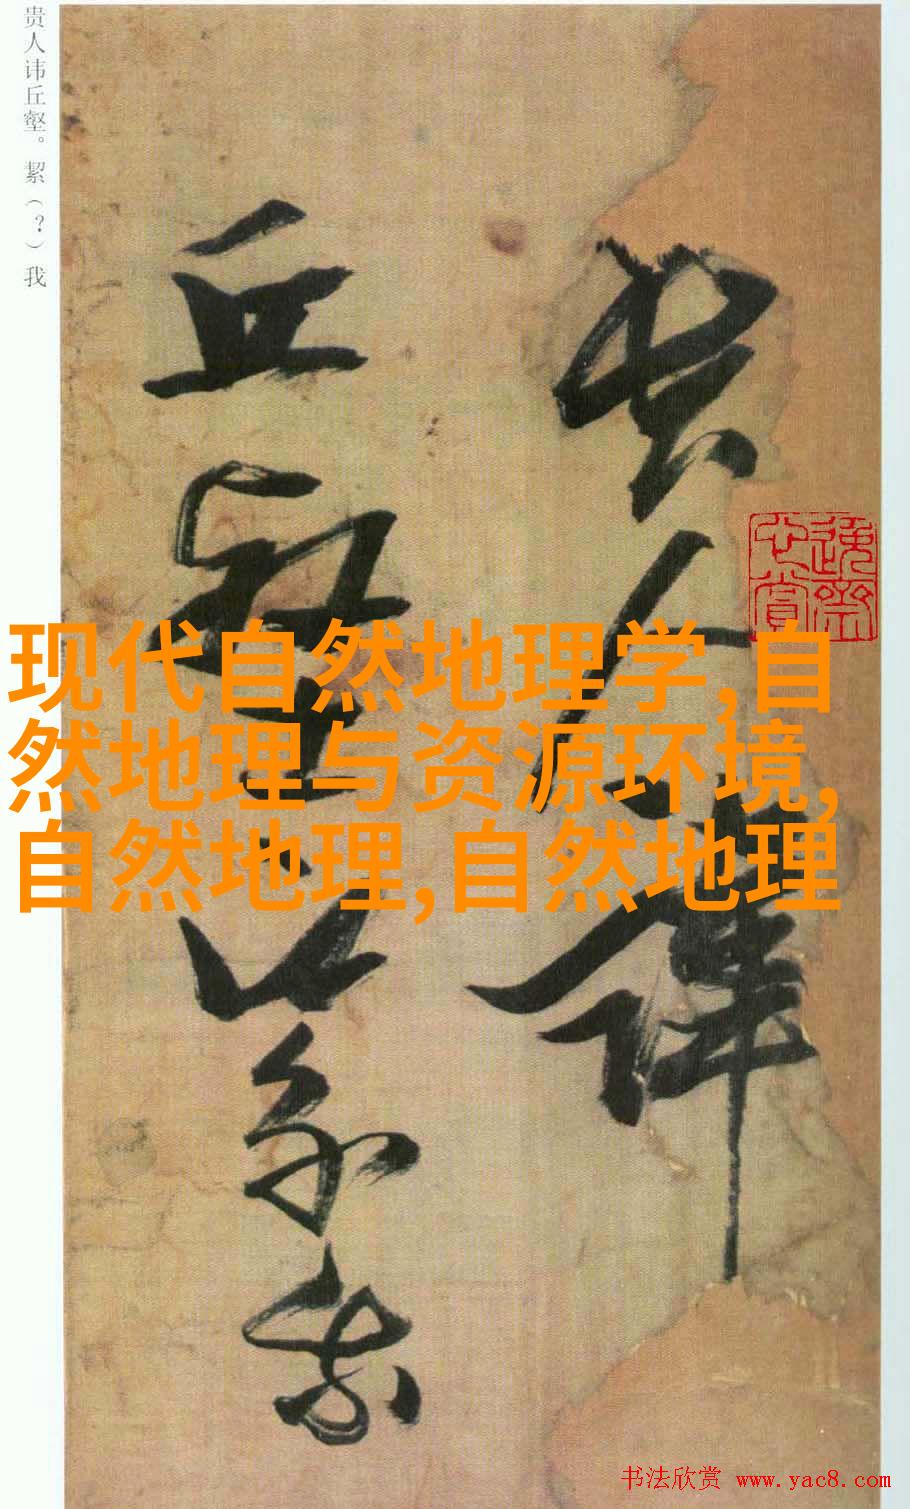 贵人讳丘壑。絜（？）我
貴人諱
丘壑
现代自然地理学,自
然地理与资源环境,
自然地理,自然地理
书法欣赏 www.yac8.com